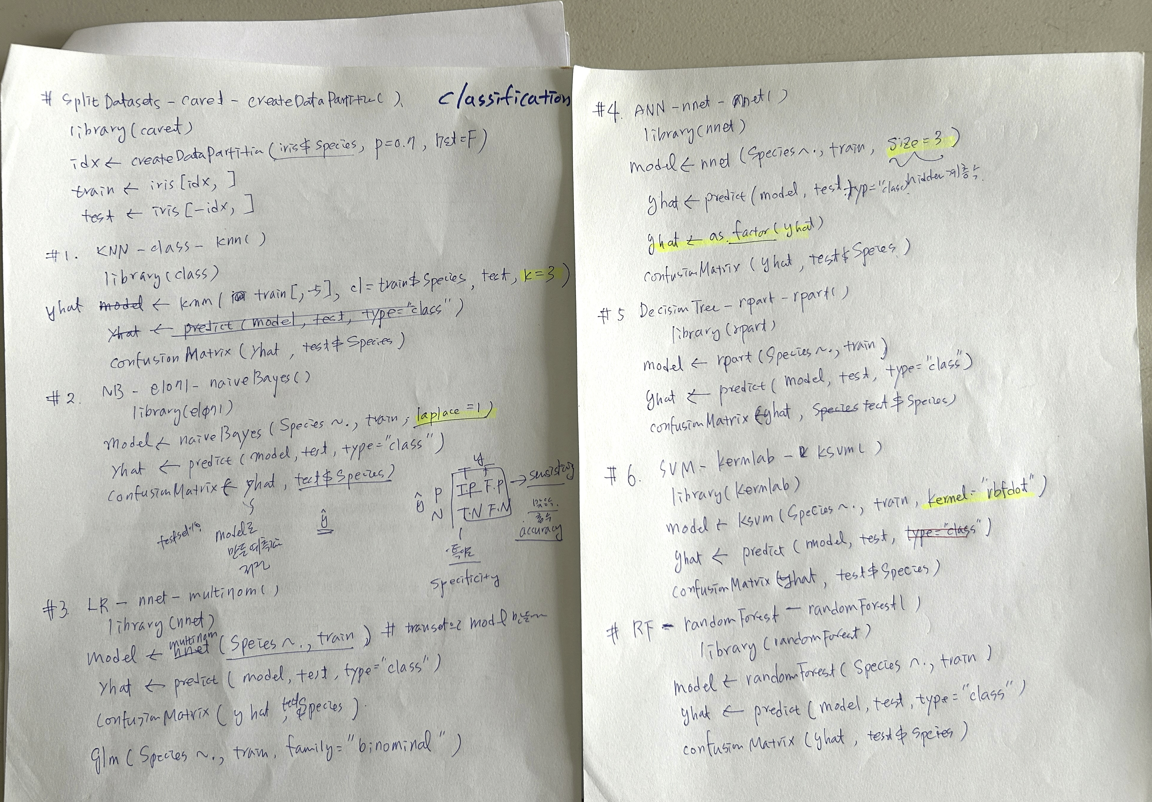 classification
# Split Datasets - caret - createDataPartition( )
library(caret)
idx ← createDataPartition (iris$Species, p=0.7, list=F)
train ← iris[idx, ]
test ← iris[-idx, ]
#1. KNN - class - knn( )
library(class)
yhat model ← knn ( train[,-5], cl=train$Species, test, k=3)
yhat ← predict (model, test, type="class")
confusionMatrix (yhat, test$Species)
#2. NB - e1071 - naiveBayes( )
library(e1071)
model ← naiveBayes (Species ~., train, laplace=1)
yhat ← predict (model, test, type="class")
confusionMatrix ( yhat, test$Species)
model로
만든 예측값
ŷ
y
ŷ P T.P F.P → sensitivity
N T.N F.N
accuracy
특이도
specificity
#3 LR - nnet - multinom( )
library(nnet)
multinom
model ← nnet (Species ~., train) # train으로 model 만듦
yhat ← predict (model, test, type="class")
confusionMatrix (yhat, test$Species).
glm (Species ~., train, family="binominal")
#4. ANN - nnet - nnet( )
library(nnet)
model ← nnet (Species ~., train, size=3)
yhat ← predict (model, test, type="class") hidden
yhat ← as.factor(yhat)
confusionMatrix (yhat, test$Species)
#5 Decision Tree - rpart - rpart( )
library(rpart)
model ← rpart (Species ~., train)
yhat ← predict ( model, test, type="class")
confusionMatrix (yhat, Species test$Species)
#6. SVM - kernlab - ksvm( )
library(kernlab)
model ← ksvm (Species ~., train, kernel="rbfdot")
yhat ← predict (model, test, type="class")
confusionMatrix (yhat, test$Species)
# RF - randomForest - randomForest( )
library(randomForest)
model ← randomForest (Species ~., train)
yhat ← predict (model, test, type="class")
confusionMatrix (yhat, test$Species)